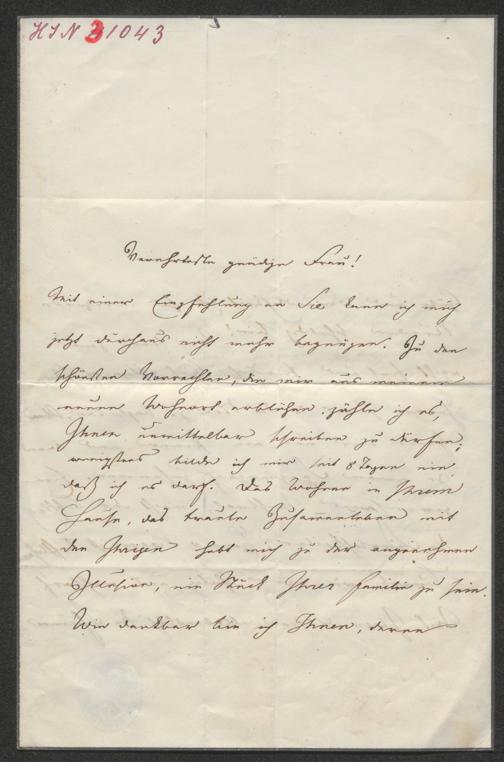 HIN 21043
Verehrteste gnädige Frau!
Mit einer Empfehlung an Sie kann ich mich
jetzt durchaus nicht mehr begnügen. Zu den
schönsten Vorrechten, die mir aus meinem
neuen Wohnort erblühen, zähle ich es,
Ihnen unmittelbar schreiben zu dürfen;
wenigstens bilde ich mir seit 8 Tagen ein
daß ich es darf. Das Wohnen in Ihrem
Hause, das traute Zusammenleben mit
den Ihrigen hebt mich zu der angenehmen
Illusion, ein Stück Ihrer Familie zu sein.
Wie dankbar bin ich Ihnen, deren